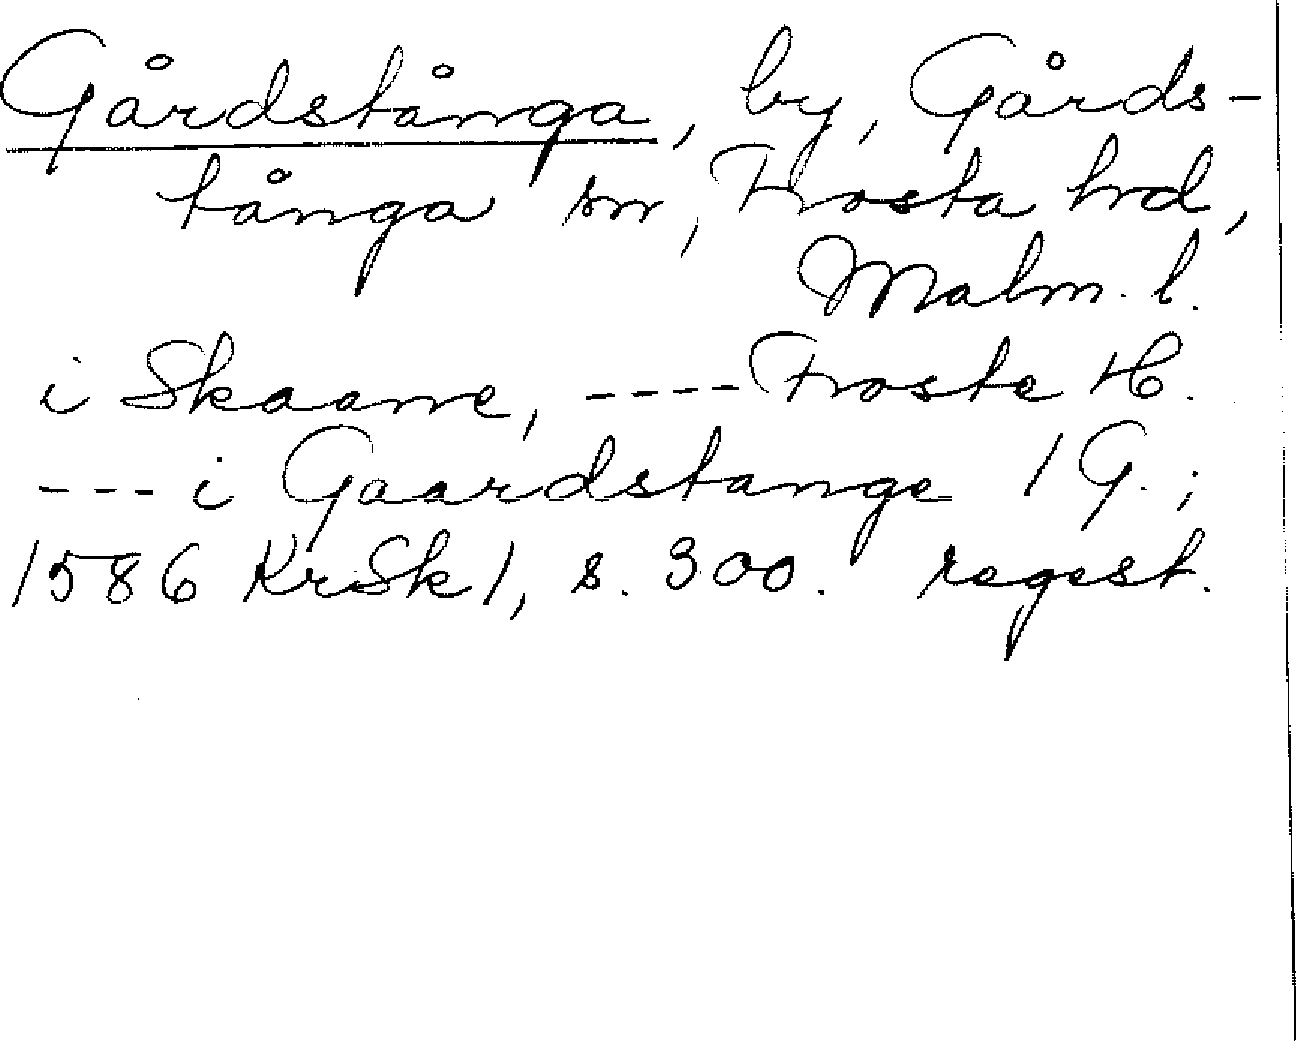 Gårdstånga, by, Gårds-
tånga sn, Frosta hrd,
Malm. l.
i Skaane, ---- Froste H.
--- i Gaardstange 1 G.;
1586 KrSk 1, s. 300. regest.